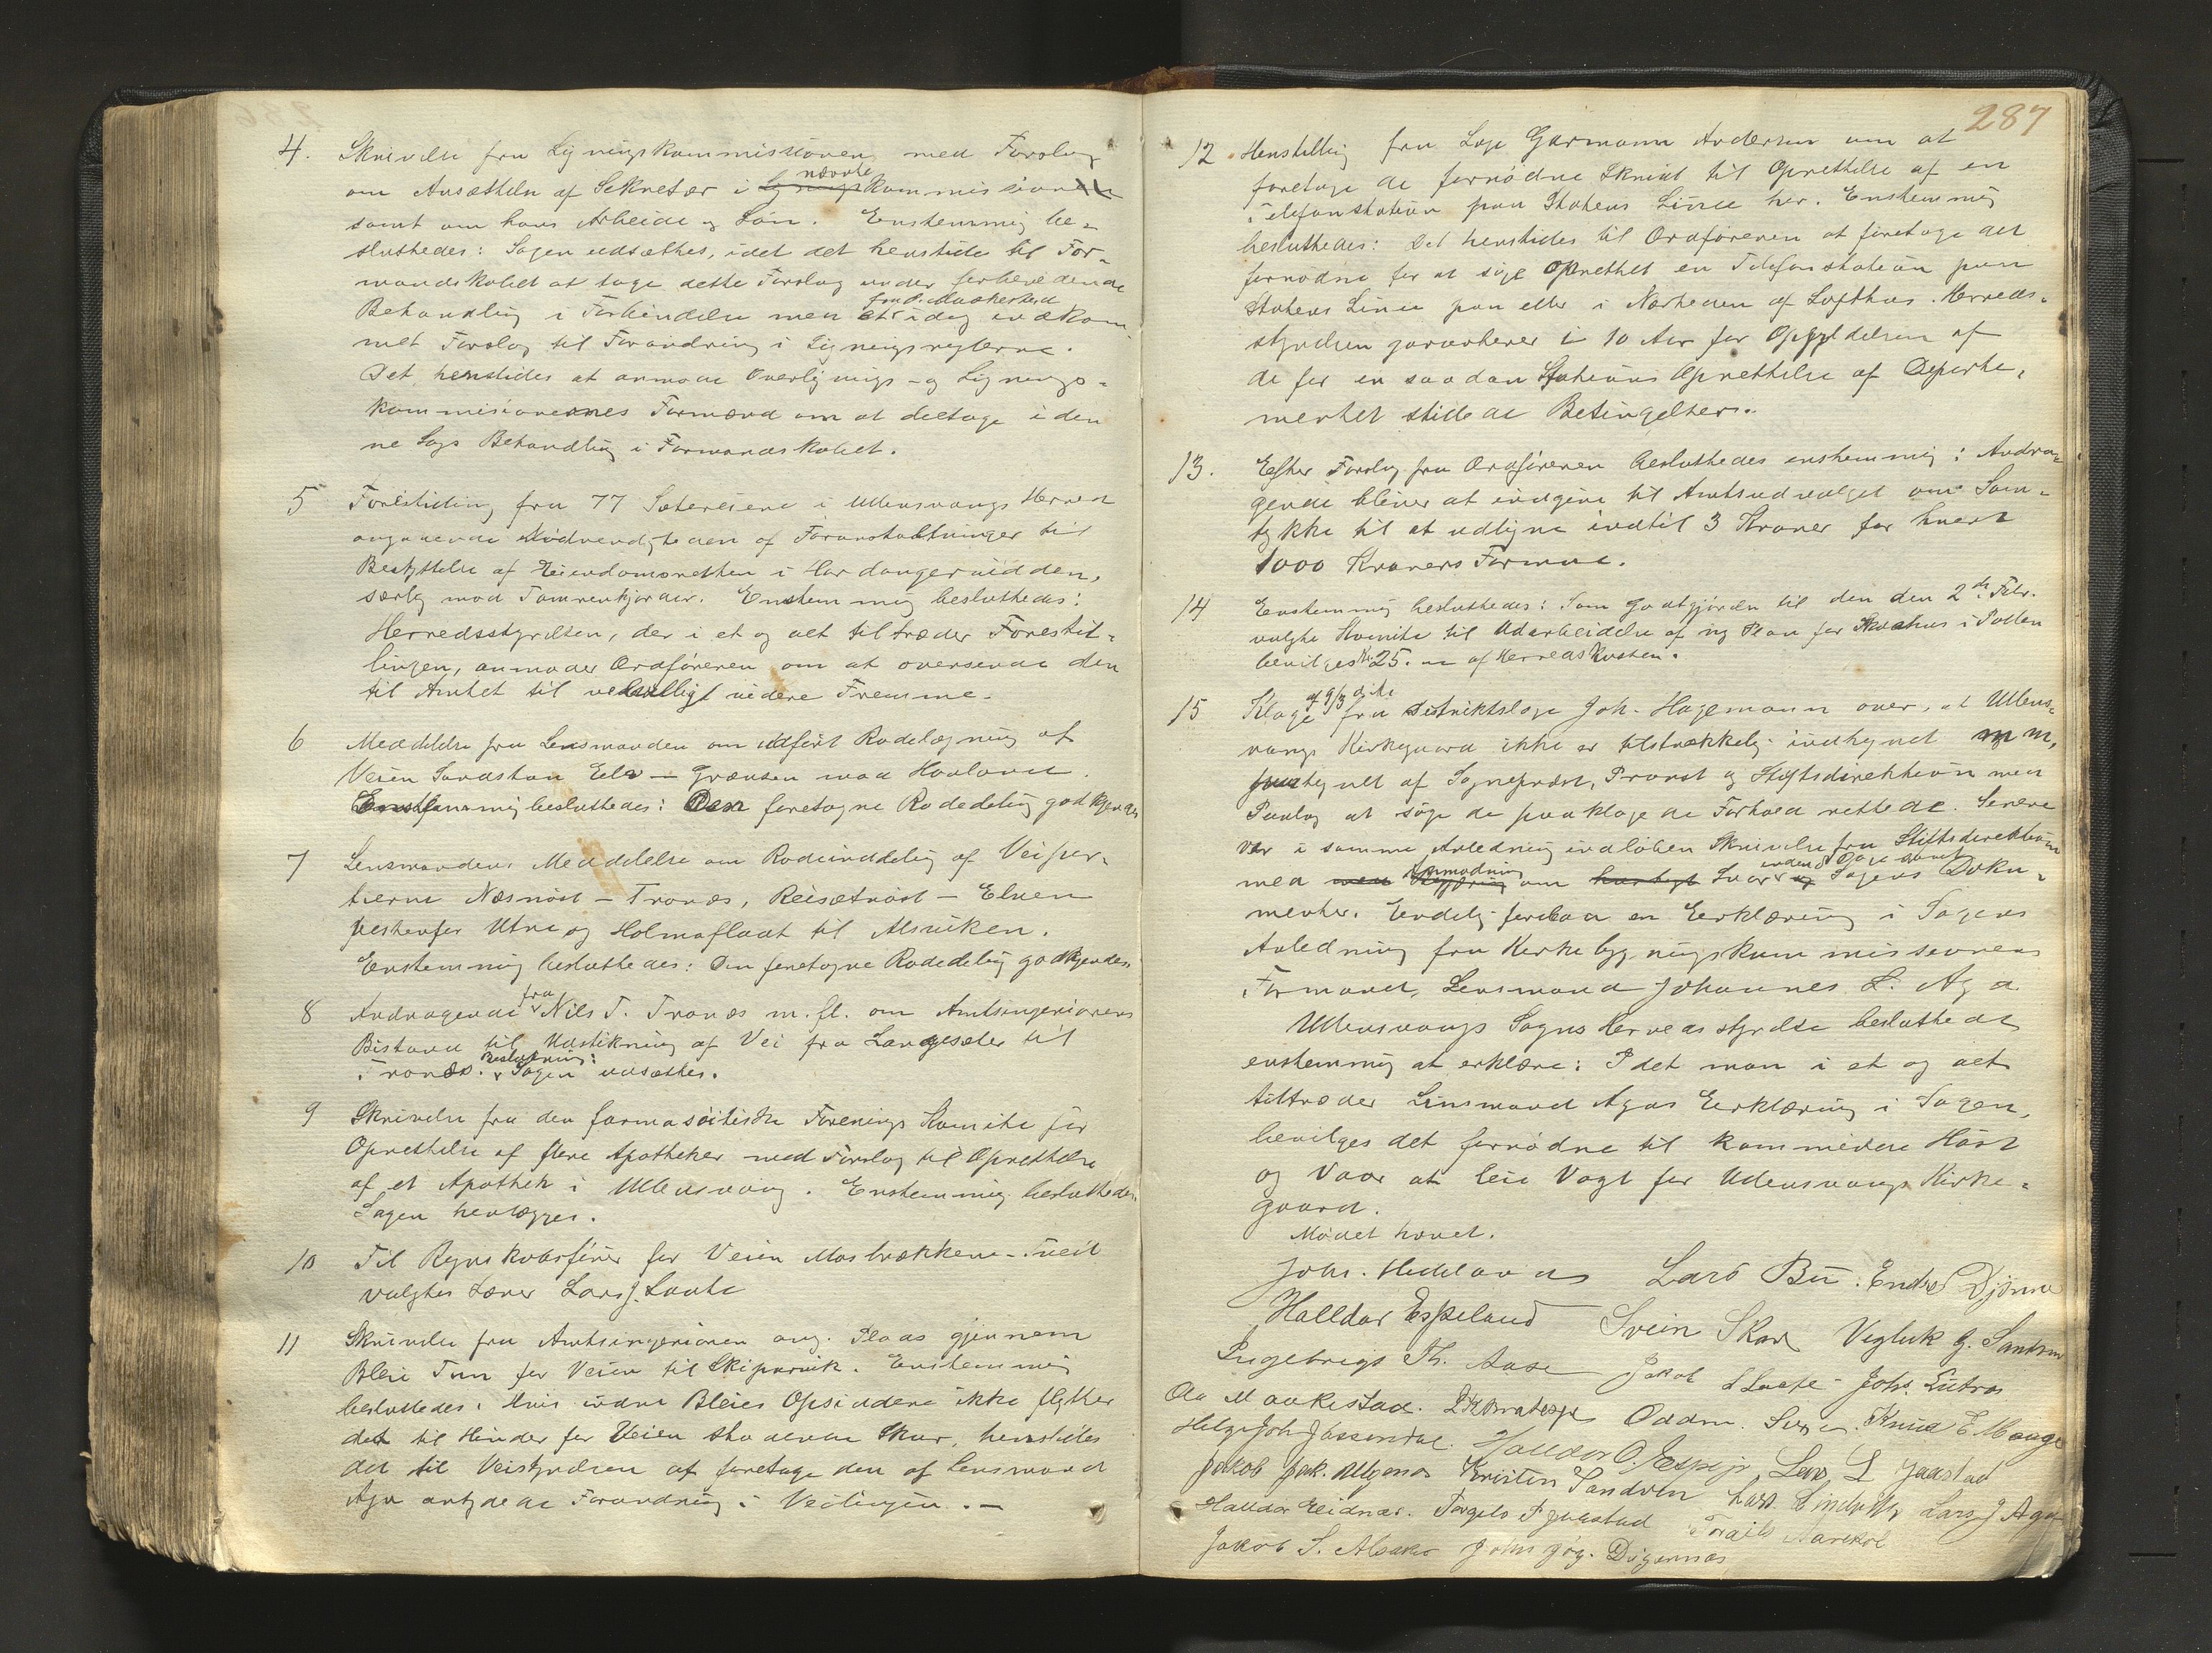 4. Skrivelse fra Ligningskommissionen med Forslag
om Ansættelse af Sekretær i nævnte kommission
samt om hans Arbeide og Løn. Enstemmig be-
sluttedes: Sagen udsættes, idet det henstilles til For-
mandskabet at tage dette Forslag under forberedende
Behandling i Forbindelse med et fra O. Maakestad idag indkom
met Forslag til Forandring i Ligningsreglerne.
Det henstilles at anmode Overlignings- og Lignings-
kommissionernes Formænd om at deltage i den
ne Sags Behandling i Formandskabet.
5 Forestilling fra 77 Sætereiere i Ullensvangs Herred
angaaende Nødvendigheden af Foranstaltninger til
Beskyttelse af Eiendomsretten i Hardangervidden,
særlig mod Tamrenhjorder. Enstemmig besluttedes:
Herredsstyrelsen, der i et og alt tiltræder Forestil-
lingen, anmoder Ordføreren om at oversende den
til Amtet til velvilligt videre Fremme.
6 Meddelelse fra Lensmanden om udført Rodelægning af
Veien Sandstøu Elv - Grænsen mod Hovland.
Enstemmig besluttedes: Den foretagne Rodedeling godkjendes
7 Lensmandens Meddelelse om Rodeinddeling af Veipar-
tierne Næsnøst - Tronæs, Reisætnøst - Elven
vestenfor Utne og Holmaflaat til Alsviken.
Enstemmig besluttedes: Den foretagne Rodedeling godkjendes
8 Andragende fra Nils T. Tronæs m. fl. om Amtsingeniørens
Bistand til Udstikning af Vei fra Langesæter til
Tronæs. Beslutning: Sagen udsættes.
9 Skrivelse fra den farmaseutiske Forenings Komite for
Oprettelse af flere Apotheker med Forslag til Oprettelse
af et Apothek i Ullensvang. Enstemmig besluttedes
Sagen henlægges.
10 Til Regnskabsfører for Veien Mosbrækkene - Tveit
valgtes Lærer Lars J. Laate
11 Skrivelse fra Amtsingeniøren ang. Plads gjennem
Bleie Tun for Veien til Skiparvik. Enstemmig
besluttedes: Hvis indre Bleies Opsiddere ikke flytter
det til Hinder for Veien staaende Skur, henstilles
det til Veistyrelsen at foretage den af Lensmand
Aga antydede Forandring i Veilinjen. -
287
12. Henstilling fra Læge Garmann Andersen om at
foretage de fornødne Skridt til Oprettelse af en
Telefonstation paa Statens Linie her. Enstemmig
besluttedes: Det henstilles til Ordføreren at foretage det
fornødne for at søge oprettet en Telefonstation paa
Statens Linie paa eller i Nærheden af Lofthus. Herreds-
styrelsen garanterer i 10 Aar for Opfyldelsen af
de for en saadan Stations Oprettelse af Departe-
mentet stillede Betingelser.
13. Efter Forslag fra Ordføreren besluttedes enstemmig: Andra-
gende bliver at indgive til Amtsudvalget om Sam-
tykke til at udligne indtil 3 Kroner for hvert
1000 Kroners Formue.
14 Enstemmig besluttedes: Som Godtgjørelse til den den 2de Febr.
valgte Komite til Udarbeidelse af ny Plan for Skolehus i Pollen
bevilges Kr. 25. af Herredskassen.
15 Klage af 9/3 fra Distriktslæge Joh. Hagemann over, at Ullens-
vangs Kirkegaard ikke er tilstrækkelig indhegnet m m,
af Sogneprest, Provst og Stiftsdirektion med
Paalæg at søge de paaklagede Forhold rettede. Senere
var i samme Anledning indløben Skrivelse fra Stiftsdirektionen
med Anmodning om Svar inden 8 Dage samt Sagens Doku-
menter. Endelig forelaa en Erklæring i Sagens
Anledning fra Kirkebygningskommissionens
Formand, Lensmand Johannes L. Aga
Ullensvangs Sogns Herredsstyrelse besluttede
enstemmig at erklære: Idet man i et og alt
tiltræder Lensmand Agas Erklæring i Sagen,
bevilges det fornødne til kommende Høst
og Vaar at leie Vagt for Ullensvangs Kirke-
gaard.
Mødet hævet.
Johs. Lars Bu. Endre Djønne
Halldor Espeland Svein Skare Vigleik G. Sandven
Ingebrigt Th. Aase Jakob Johs. Eitnes
Ola Maakestad. Oddm. Knud E. Mauge
Helge Joh Jaastad. Halldor O. Espe jr Lars L Jaastad
Jakob Jak. Kristen Sandven Lars Lars J Aga
Halldor Eidnæs. Torgils T Jaastad Torgils Aarekol
Jakob S. Alsaker John Jørg. Digernæs